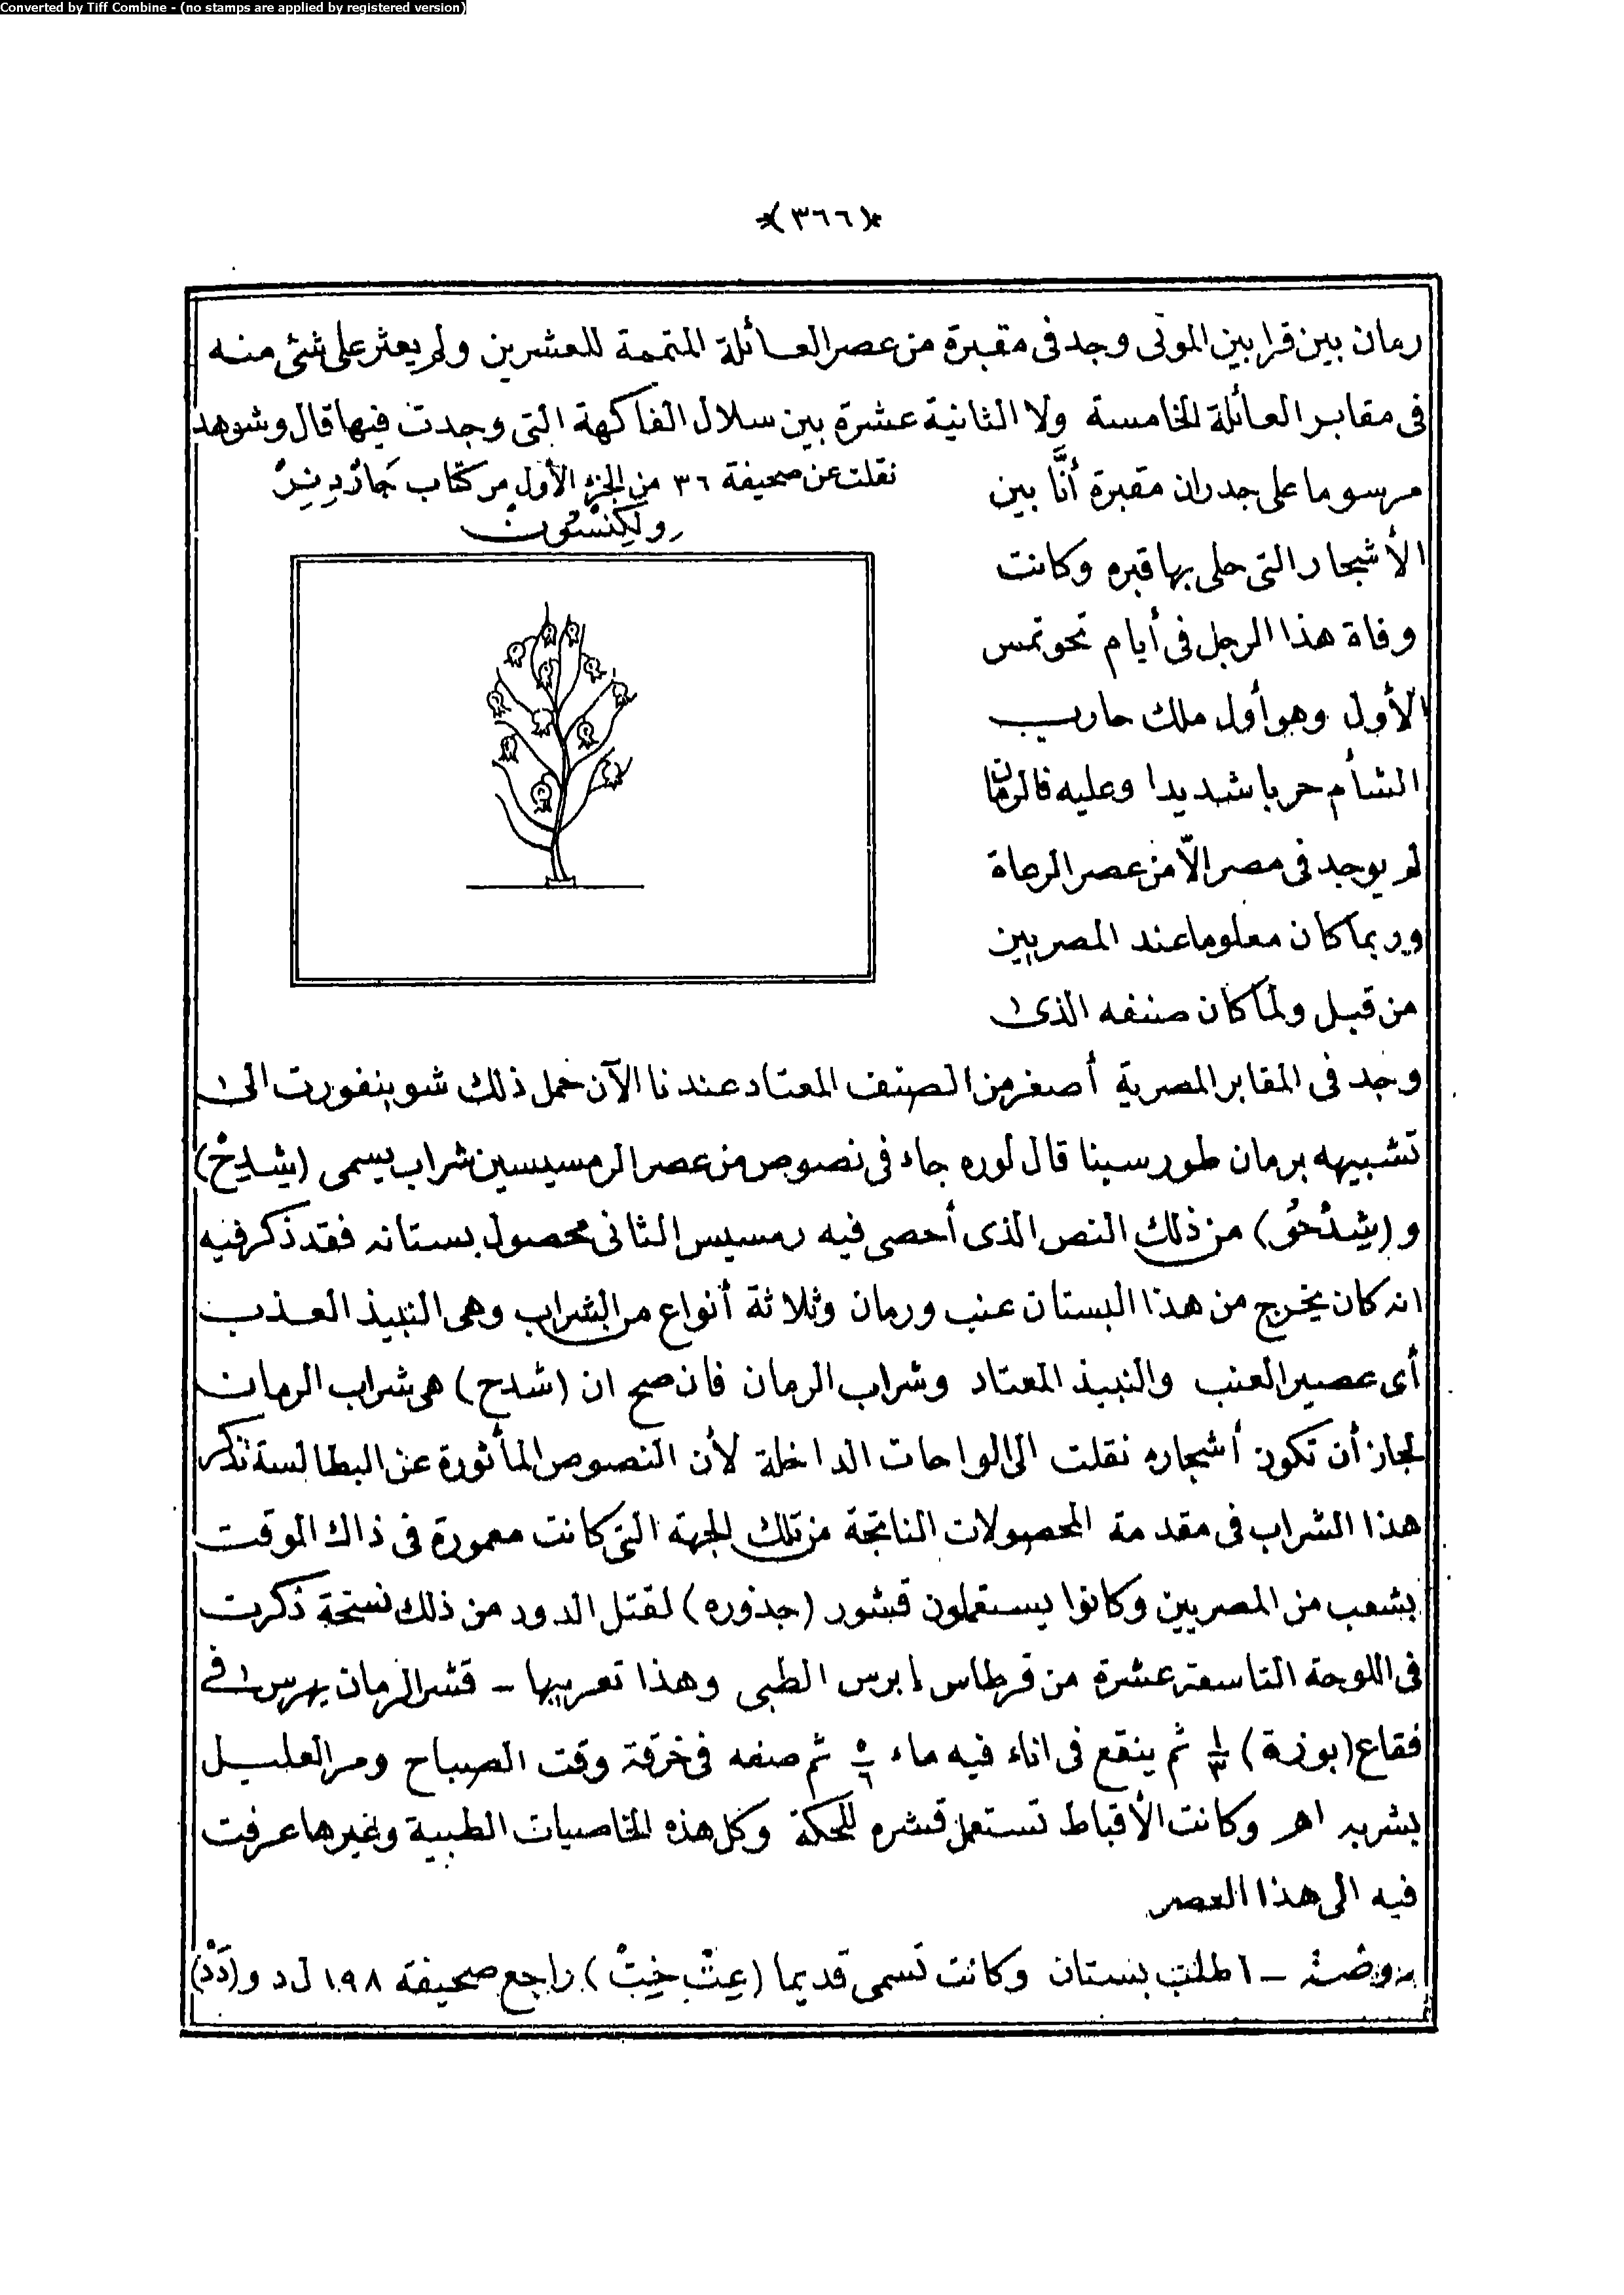 Converted by Tiff Combine - (no stamps are applied by registered version)
*(٣٦٦)*
رمان بين قرابين الموتى وجد فى مقبرة من عصر العائلة المتممة للعشرين ولم يعثر على شئ منه
فى مقابر العائلة الخامسة ولا الثانية عشرة بين سلال الفاكهة التى وجدت فيها قال وشوهد
مرسوما على جدران مقبرة أنَّا بين
الأشجار التى حلى بها قبره وكانت
وفاة هذا الرجل فى أيام تحوتمس
الأول وهو أول ملك حارب
الشأم حربا شديدا وعليه فالرمان
لم يوجد فى مصر الّا من عصر الرعاة
وربما كان معلوما عند المصريين
من قبل ولما كان صنفه الذى
نقلت عن صحيفة ٣٦ من الجزء الأول من كتاب جَارْدِنِرْ
ولكِنْسُون
وجد فى المقابر المصرية أصغر من الصنف المعتاد عندنا الآن حمل ذلك شوينفورت الى
تشبيهه برمان طور سينا قال لوره جاء فى نصوص من عصر الرمسيسين شراب يسمى (شِدِحْ)
و (شِدْحُو) من ذلك النص الذى أحصى فيه رمسيس الثانى محصول بستانه فقد ذكر فيه
انه كان يخرج من هذا البستان عنب ورمان وثلاثة أنواع من الشراب وهى النبيذ العذب
أى عصير العنب والنبيذ المعتاد وشراب الرمان فان صح ان (شدح) هى شراب الرمان
لجاز أن تكون أشجاره نقلت الى الواحات الداخلة لأن النصوص المأثورة عن البطالسة تذكر
هذا الشراب فى مقدمة المحصولات الناتجة من تلك الجهة التى كانت معمورة فى ذاك الوقت
بشعب من المصريين وكانوا يستعملون قشور (جذوره) لقتل الدود من ذلك نسخة ذكرت
فى اللوحة التاسعة عشرة من قرطاس إبرس الطبى وهذا تعريبها ـ قشر الرمان يهرس فى
فقاع (بوزة) ١/٣ ثم ينقع فى اناء فيه ماء ٥/٦ ثم صفه فى خرقة وقت الصباح ومر العليل
بشربه اهر وكانت الأقباط تستعمل قشره للحكة وكل هذه الخاصيات الطبية وغيرها عرفت
فيه الى هذا العصر
روضة ـ اطلب بستان وكانت تسمى قديما (عِتْ خِتْ) راجع صحيفة ١٩٨ ل د و (دَدْ)